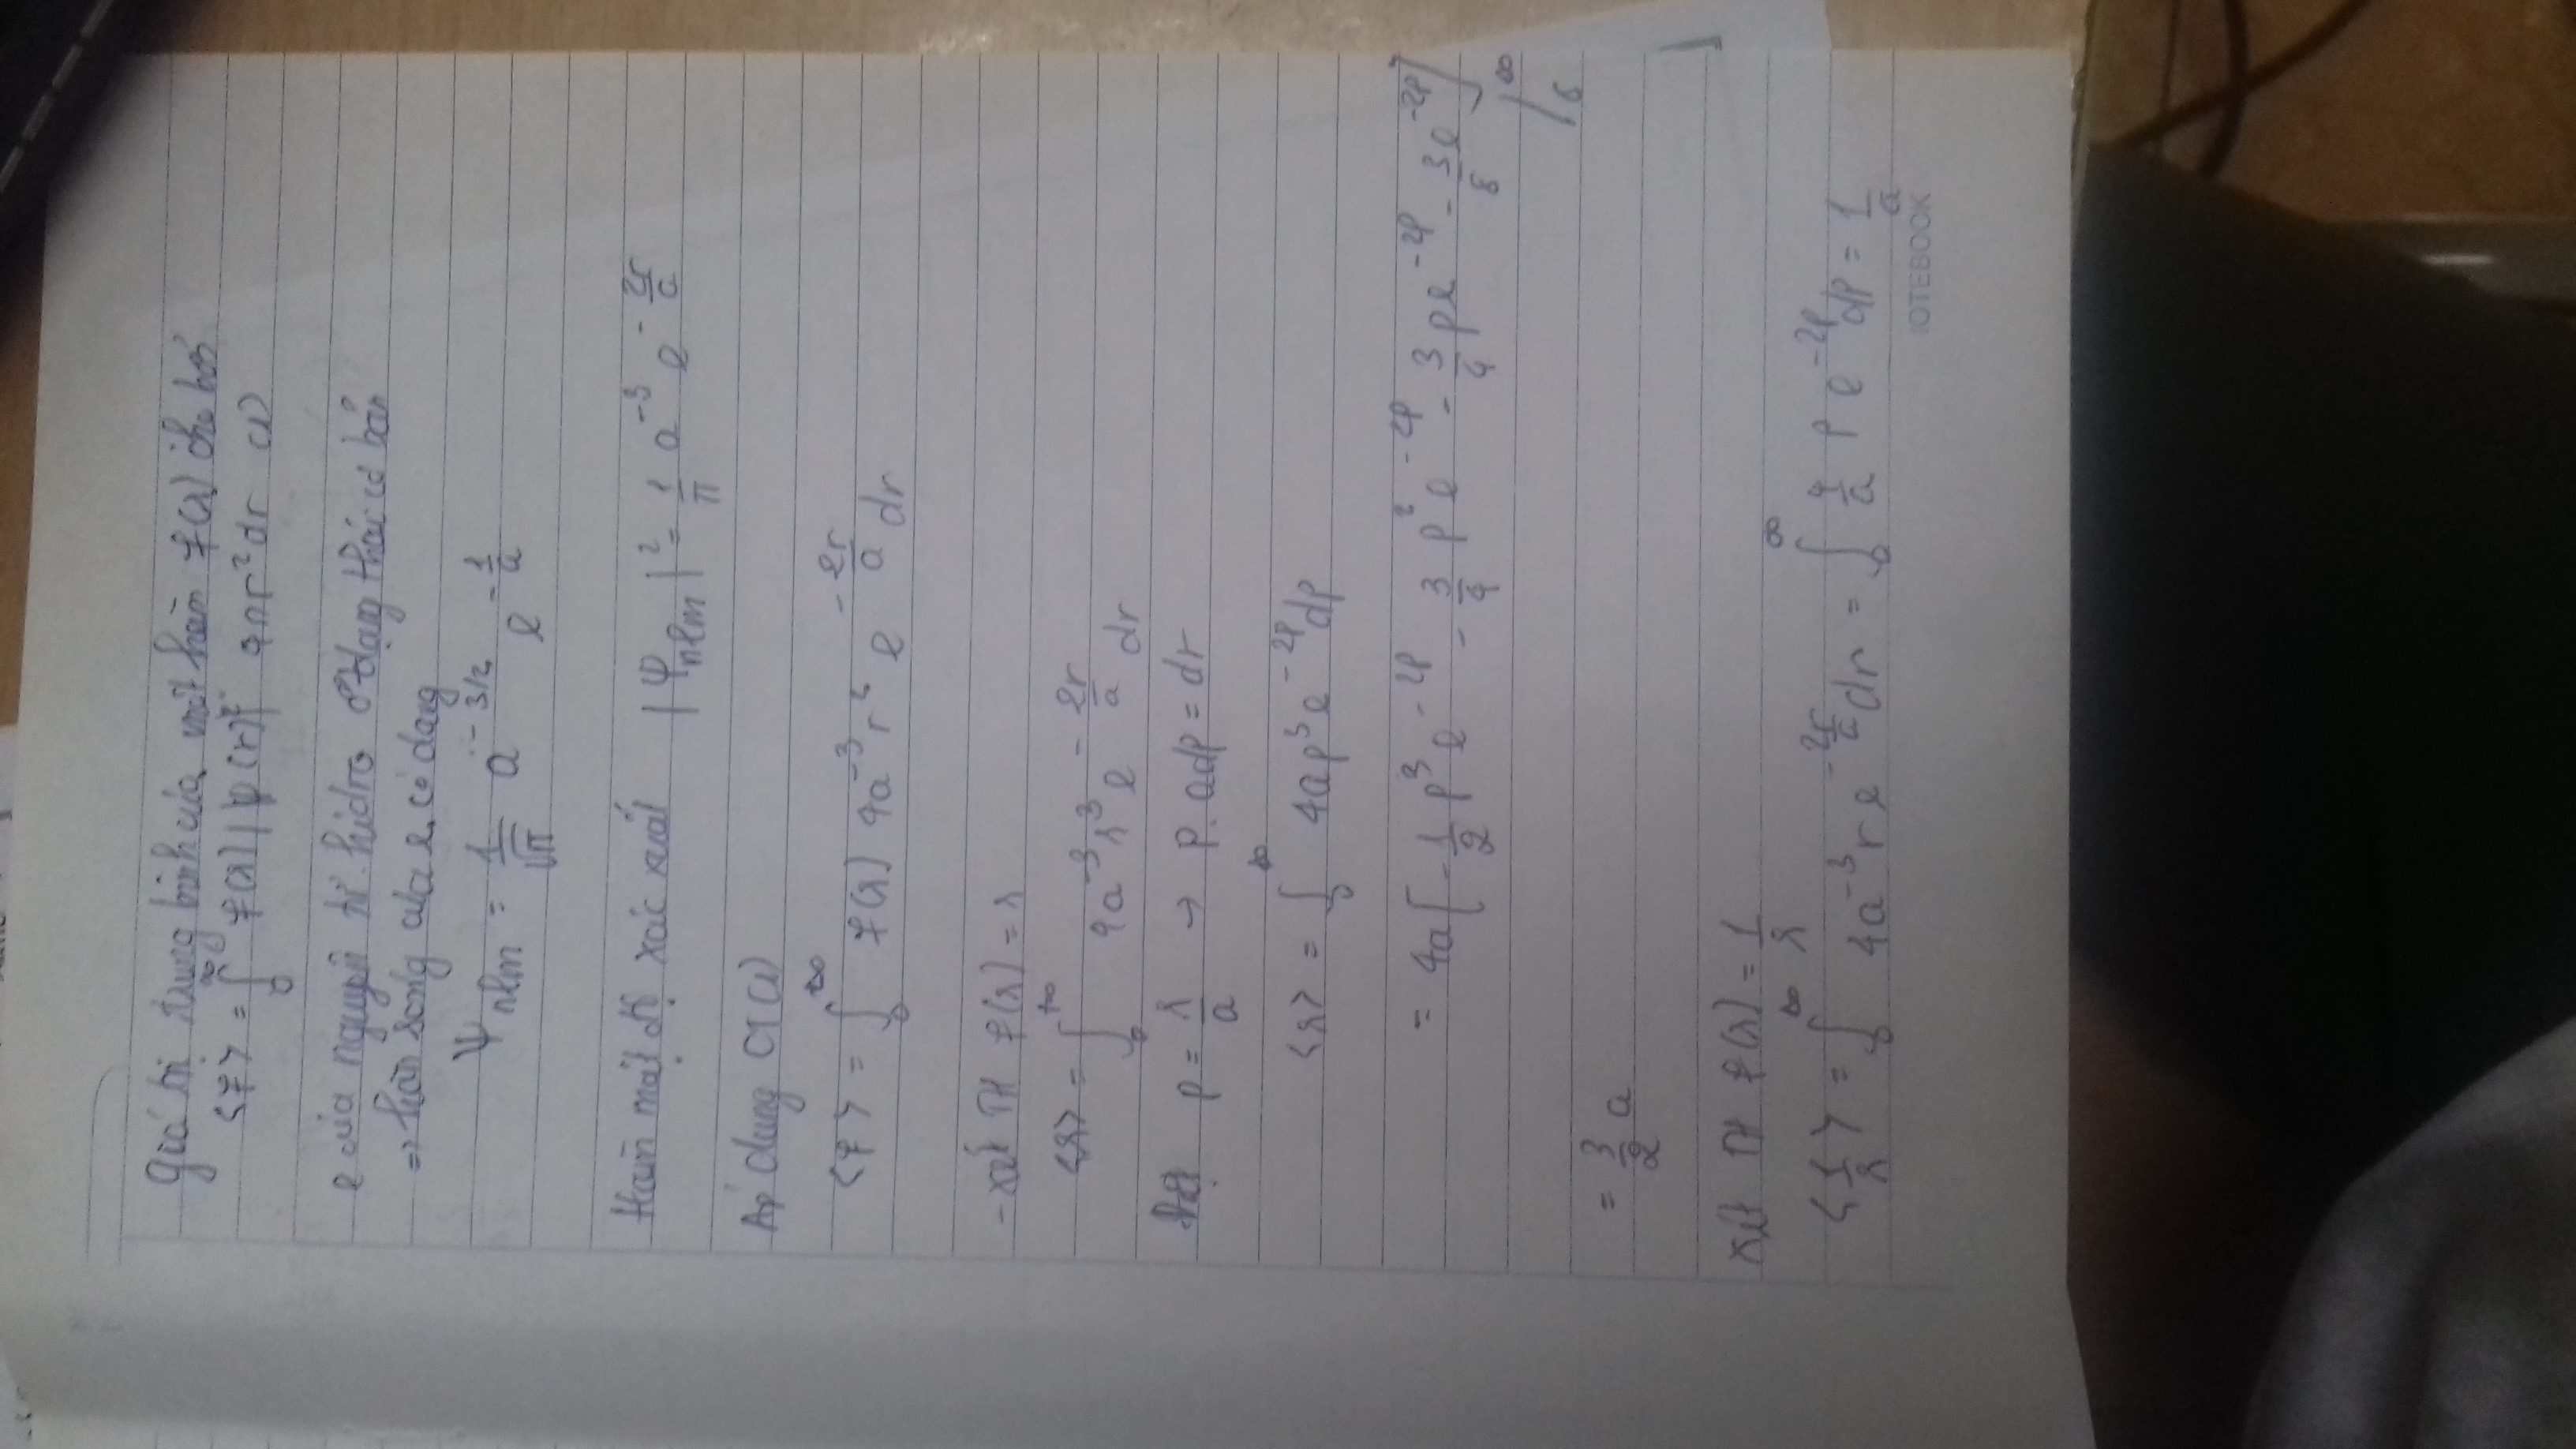 Giá trị trung bình của một hàm f(r) cho bởi
<f> = ∫₀^∞ f(r) |ψ(r)|² 4πr² dr (1)
e của nguyên tử hidro ở trạng thái cơ bản
=> hàm sóng của e có dạng
Ψnlm = 1/√π a^(-3/2) e^(-1/a)
Hàm mật độ xác xuất |Ψnlm|² = 1/π a^(-3) e^(-2r/a)
Áp dụng CT (1)
<f> = ∫₀^∞ f(r) 4a^(-3) r² e^(-2r/a) dr
- xét TH f(r) = r
<r> = ∫₀^(+∞) 4a^(-3) r³ e^(-2r/a) dr
Đặt p = r/a → p. adp = dr
<r> = ∫₀^∞ 4ap³e^(-2p) dp
= 4a [-1/2 p³ e^(-2p) - 3/4 p² e^(-2p) - 3/4 pe^(-2p) - 3/8 e^(-2p)] |₀^∞
= 3/2 a
xét TH f(r) = 1/r
<1/r> = ∫₀^∞ 4a^(-3) r e^(-2r/a) dr = ∫₀^∞ 4/a p e^(-2p) dp = 1/a
NOTEBOOK